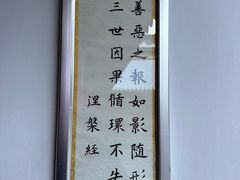 善惡之報如影随形
三世因果循環不失
涅槃經